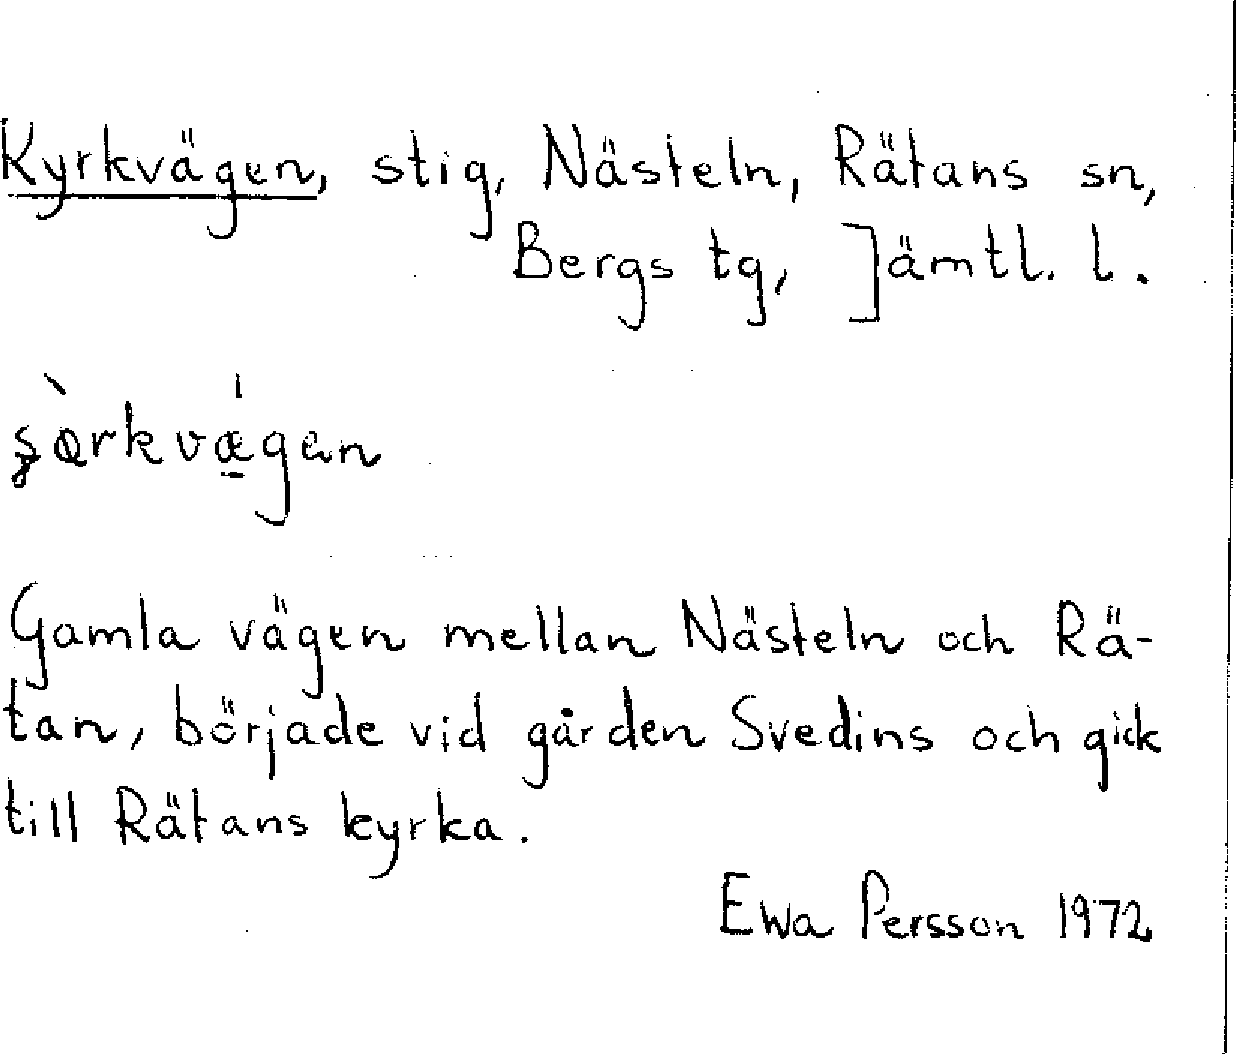 Kyrkvägen, stig, Nästeln, Rätans sn,
Bergs tg, Jämtl. l.
Gamla vägen mellan Nästeln och Rä-
tan, började vid gården Svedins och gick
till Rätans kyrka.
Ewa Persson 1972